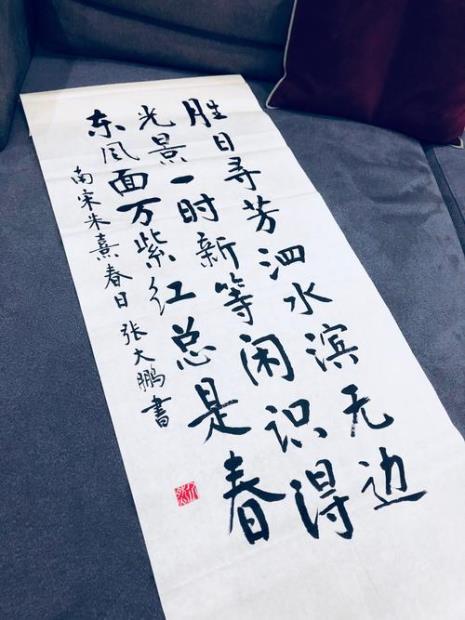 胜日寻芳泗水滨无边
光景一时新等闲识得
东风面万紫红总是春
南宋朱熹春日 张大鹏书